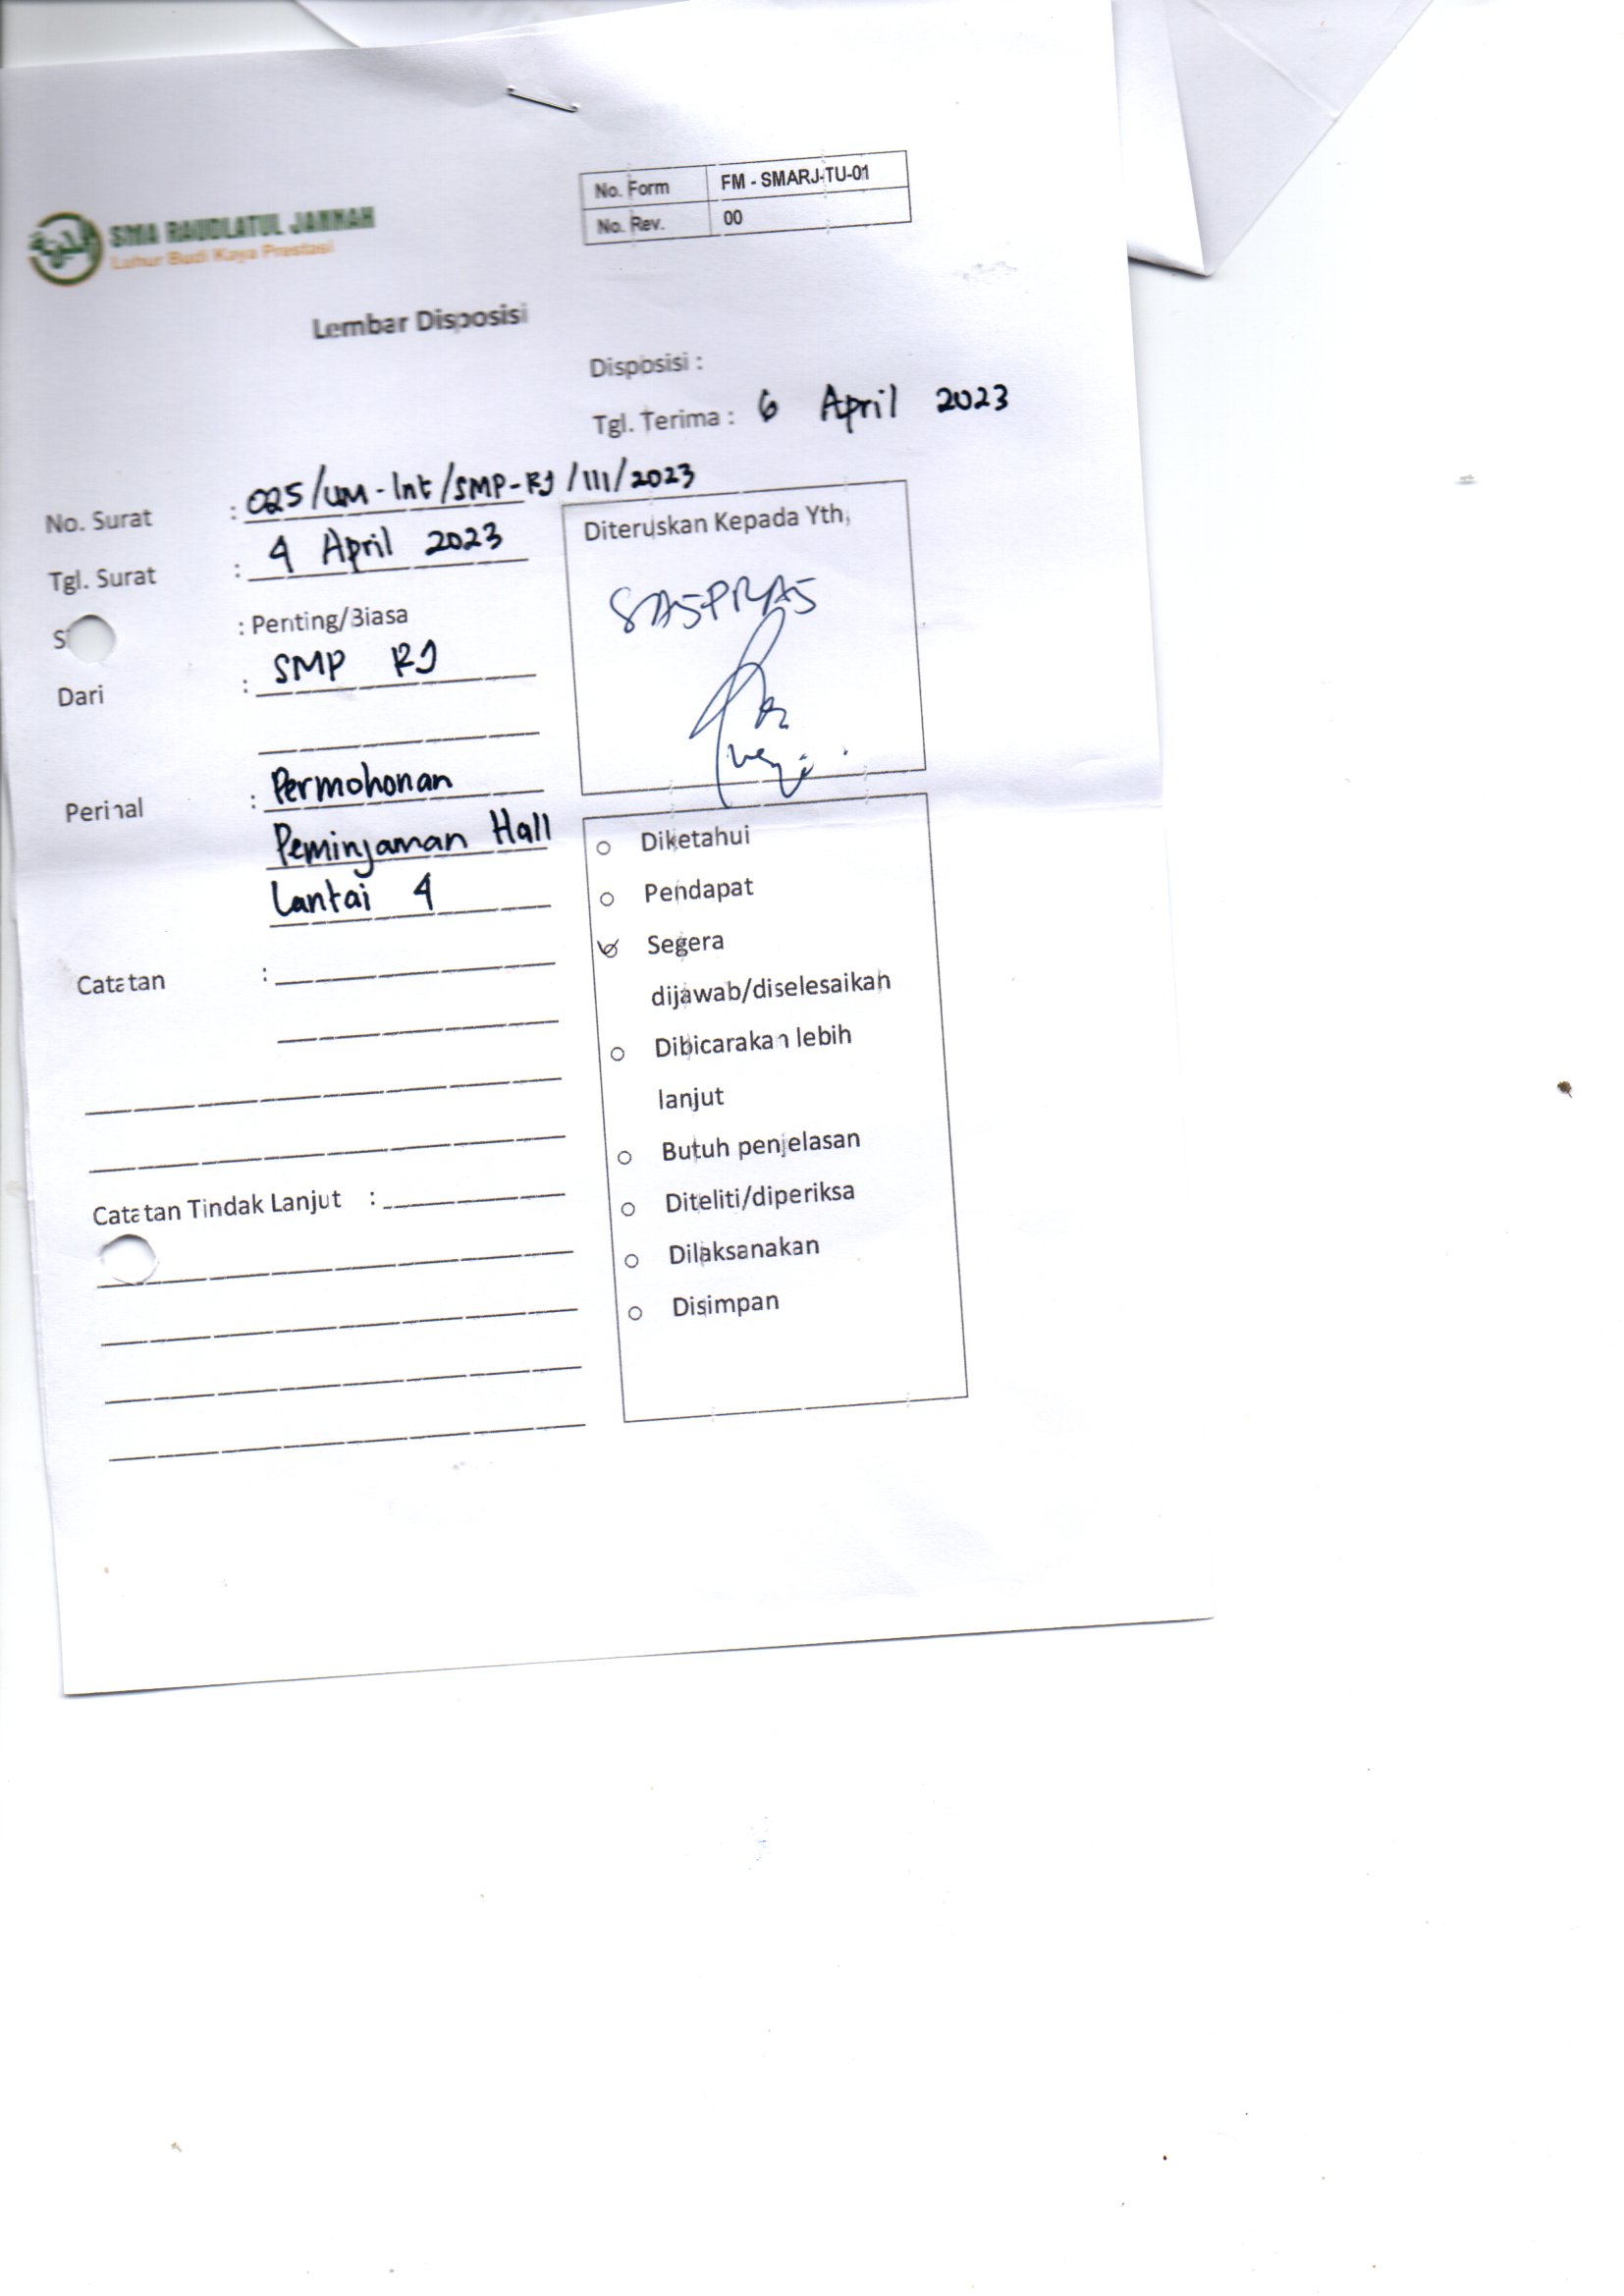 No. Form FM - SMARJ-TU-01
No. Rev. 00
SMA RAUDLATUL JANNAH
Luhur Budi Kaya Prestasi
Lembar Disposisi
Disposisi :
Tgl. Terima : 6 April 2023
No. Surat : 025/UM-Int/SMP-RJ/III/2023
Tgl. Surat : 4 April 2023
: Penting/Biasa
Dari : SMP RJ
Perihal : Permohonan
Peminjaman Hall
Lantai 4
Catatan :
Catatan Tindak Lanjut :
Diteruskan Kepada Yth,
SASPRAS
Diketahui
Pendapat
Segera
dijawab/diselesaikan
Dibicarakan lebih
lanjut
Butuh penjelasan
Diteliti/diperiksa
Dilaksanakan
Disimpan